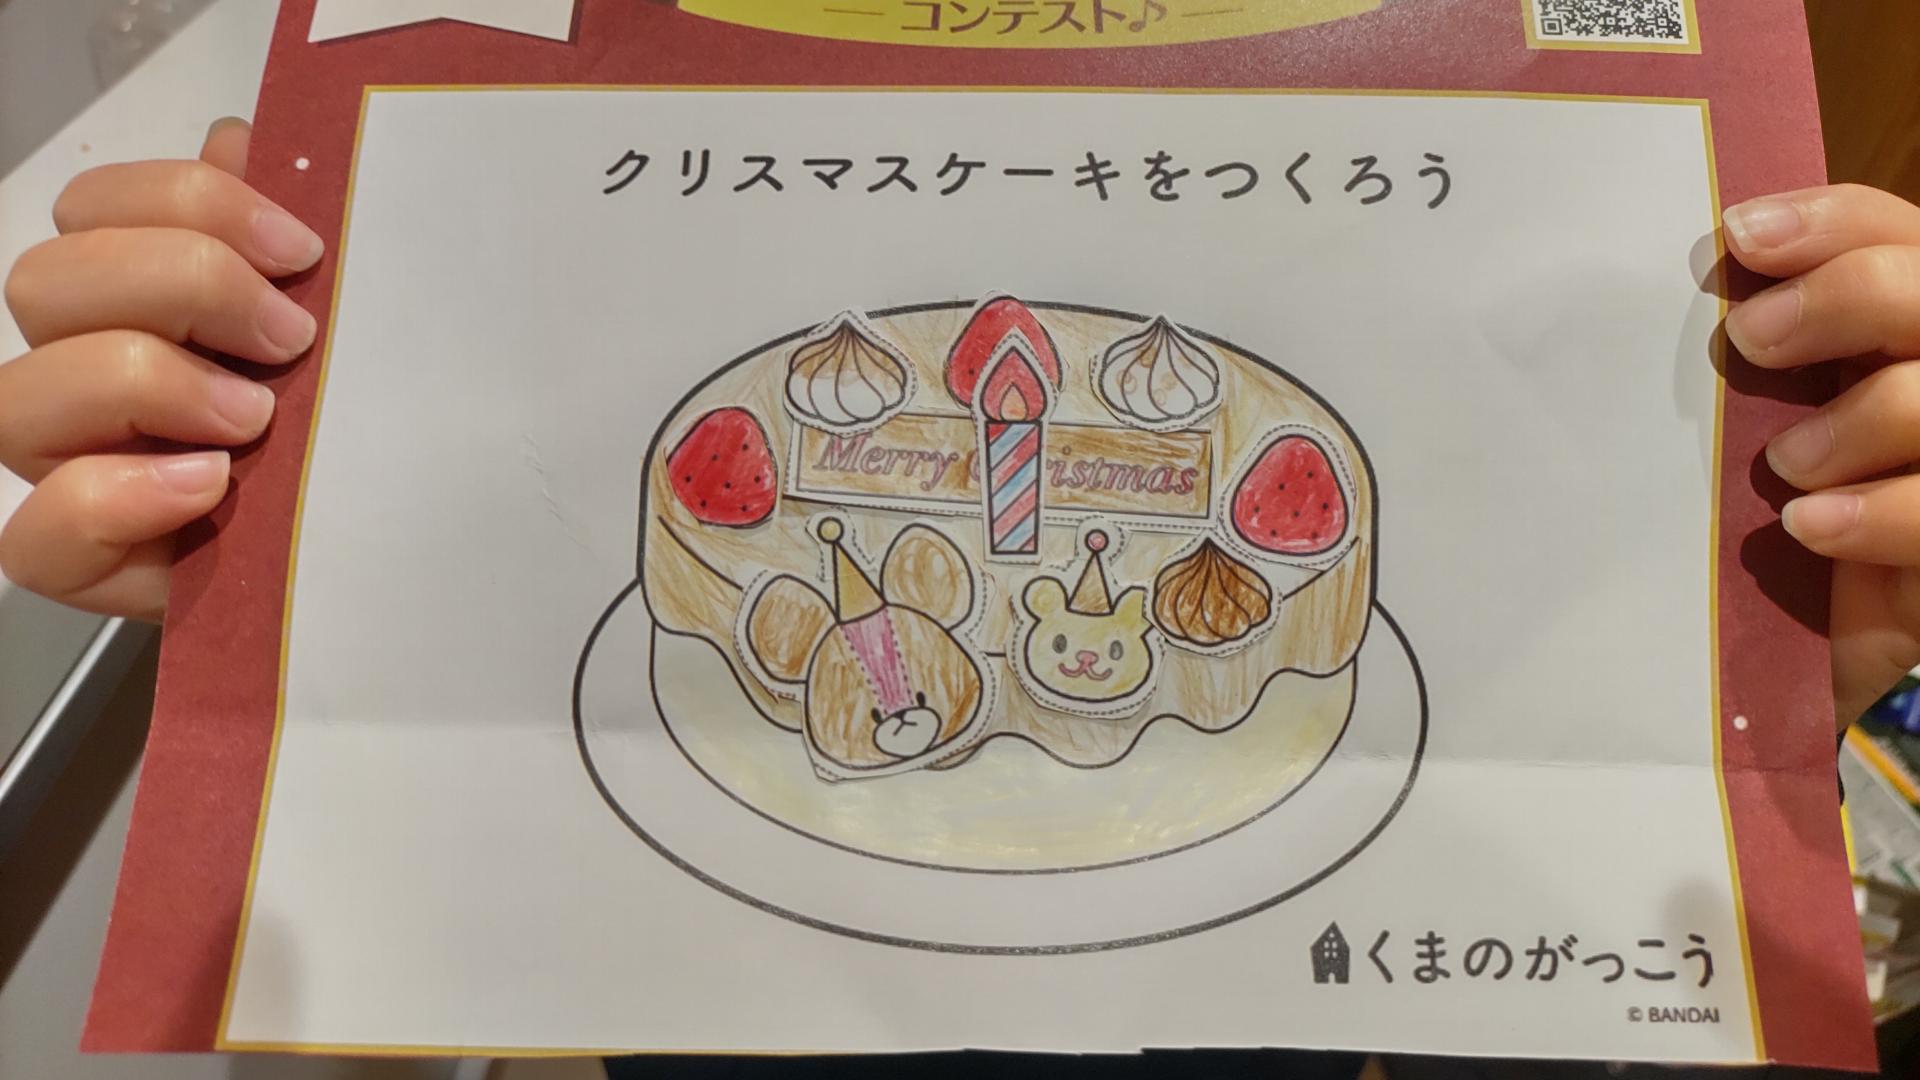 コンテスト♪
クリスマスケーキをつくろう
Merry Christmas
くまのがっこう
© BANDAI